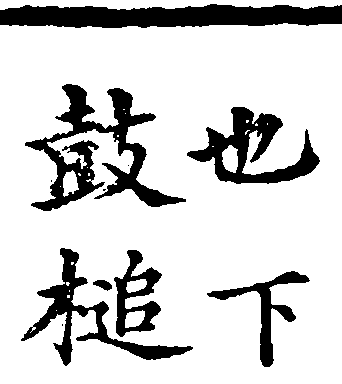 也下
鼓槌